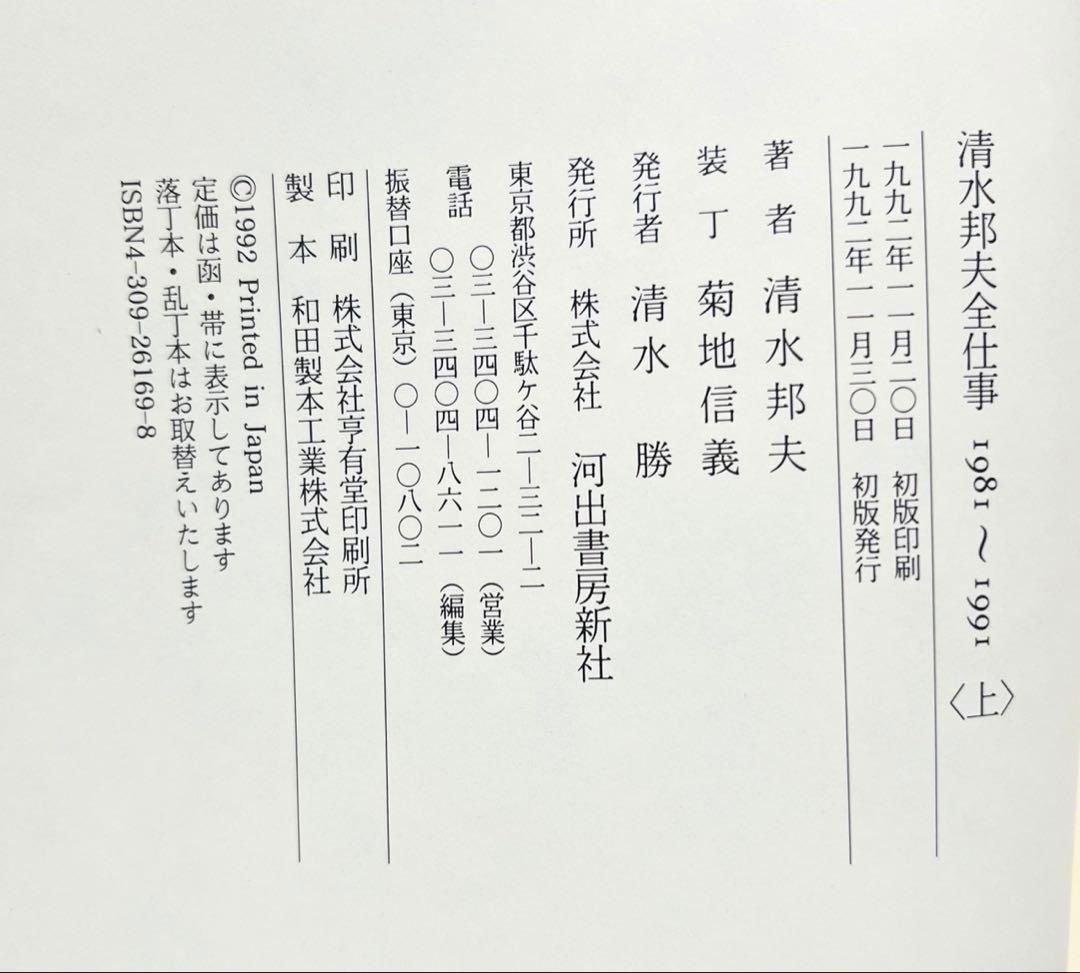 清水邦夫全仕事 1981〜1991〈上〉
一九九二年一一月二〇日 初版印刷
一九九二年一一月三〇日 初版発行
著者 清水邦夫
装丁 菊地信義
発行者 清水勝
発行所 株式会社 河出書房新社
東京都渋谷区千駄ケ谷二―三二―二
電話 〇三―三四〇四―一二〇一（営業）
〇三―三四〇四―八六一一（編集）
振替口座（東京）〇―一〇八〇二
印刷 株式会社亨有堂印刷所
製本 和田製本工業株式会社
©1992 Printed in Japan
定価は函・帯に表示してあります
落丁本・乱丁本はお取替えいたします
ISBN4-309-26169-8